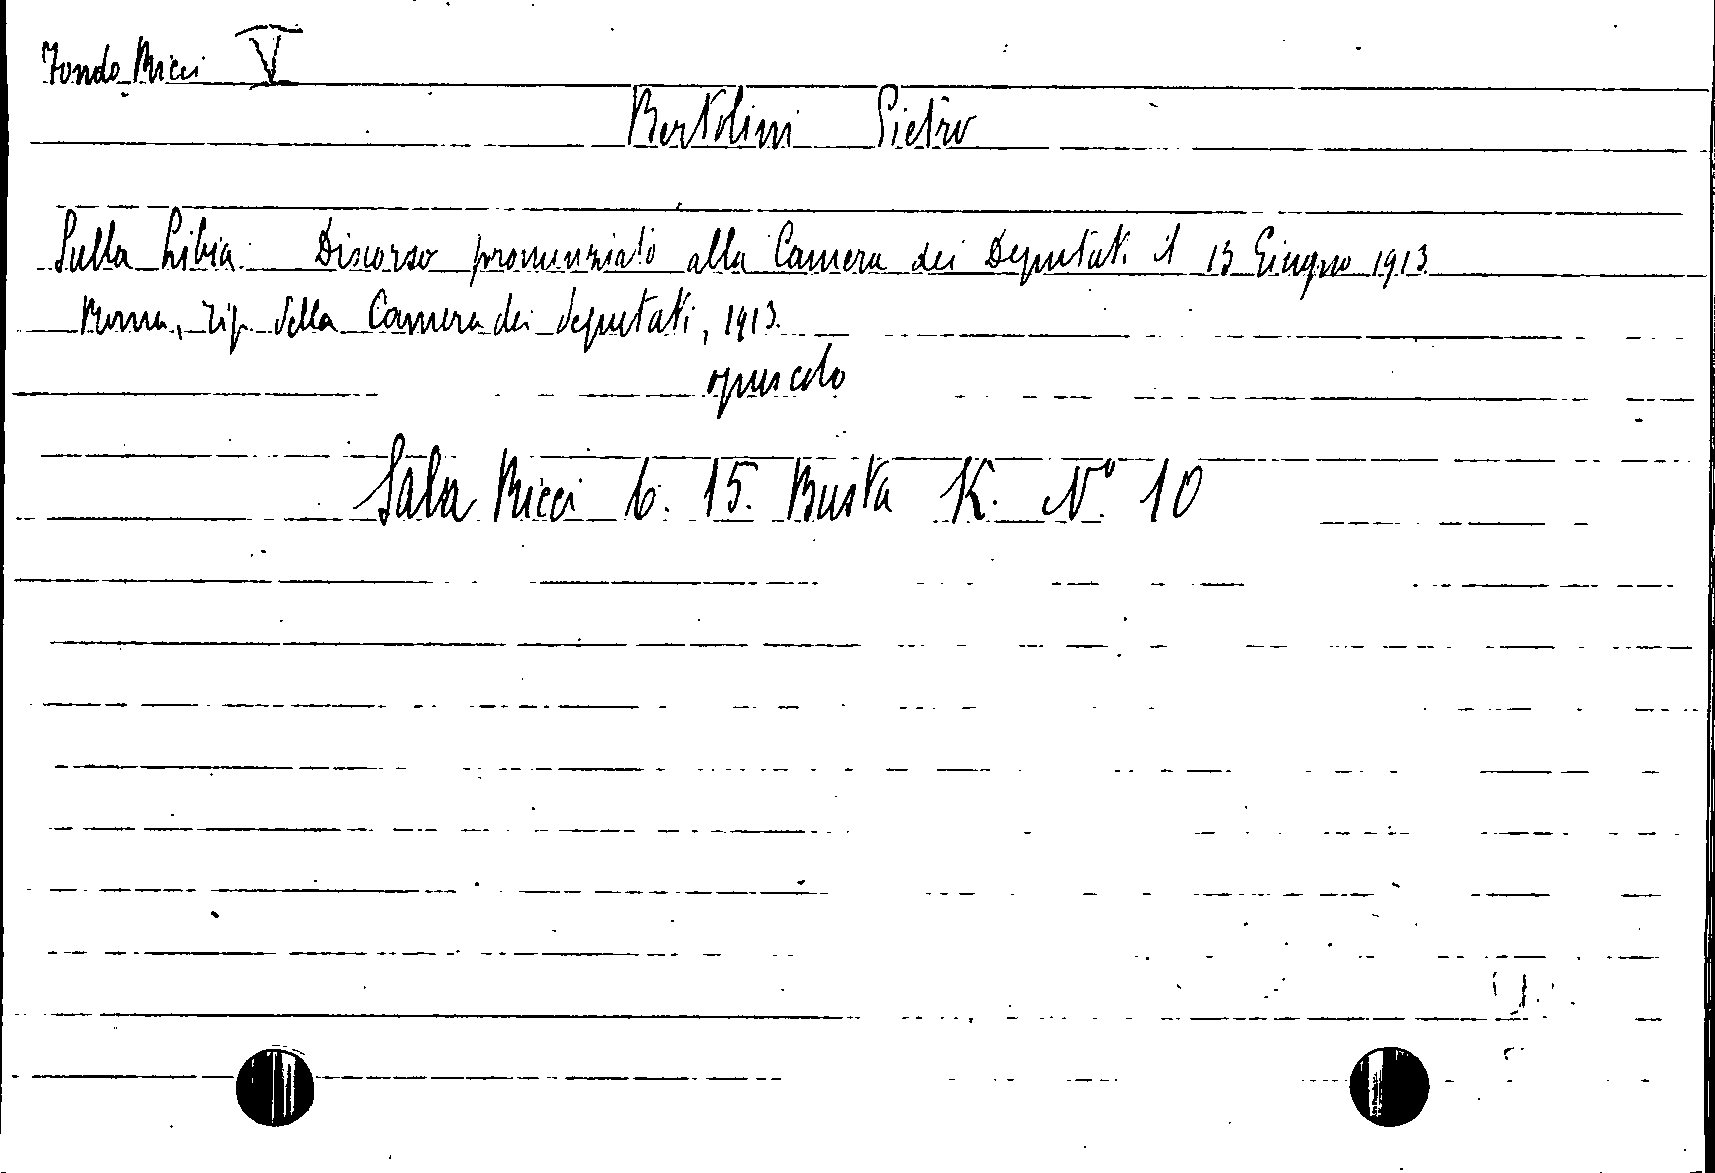 Fondo Ricci V
Bertolini Pietro
Sulla Libia. Discorso pronunziato alla Camera dei Deputati il 13 Giugno 1913
Roma, Tip. della Camera dei deputati, 1913.
opuscolo
Sala Ricci 6. 15. Busta K. N° 10